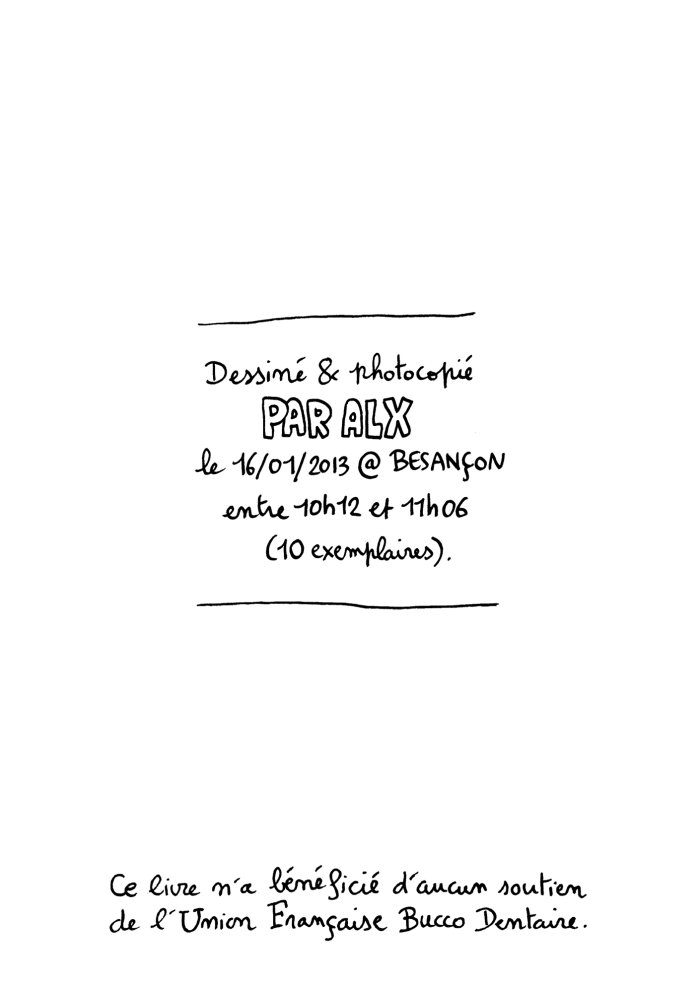 Dessiné & photocopié
PAR ALX
le 16/01/2013 @ BESANÇON
entre 10h12 et 11h06
(10 exemplaires).
Ce livre n'a bénéficié d'aucun soutien
de l'Union Française Bucco Dentaire.